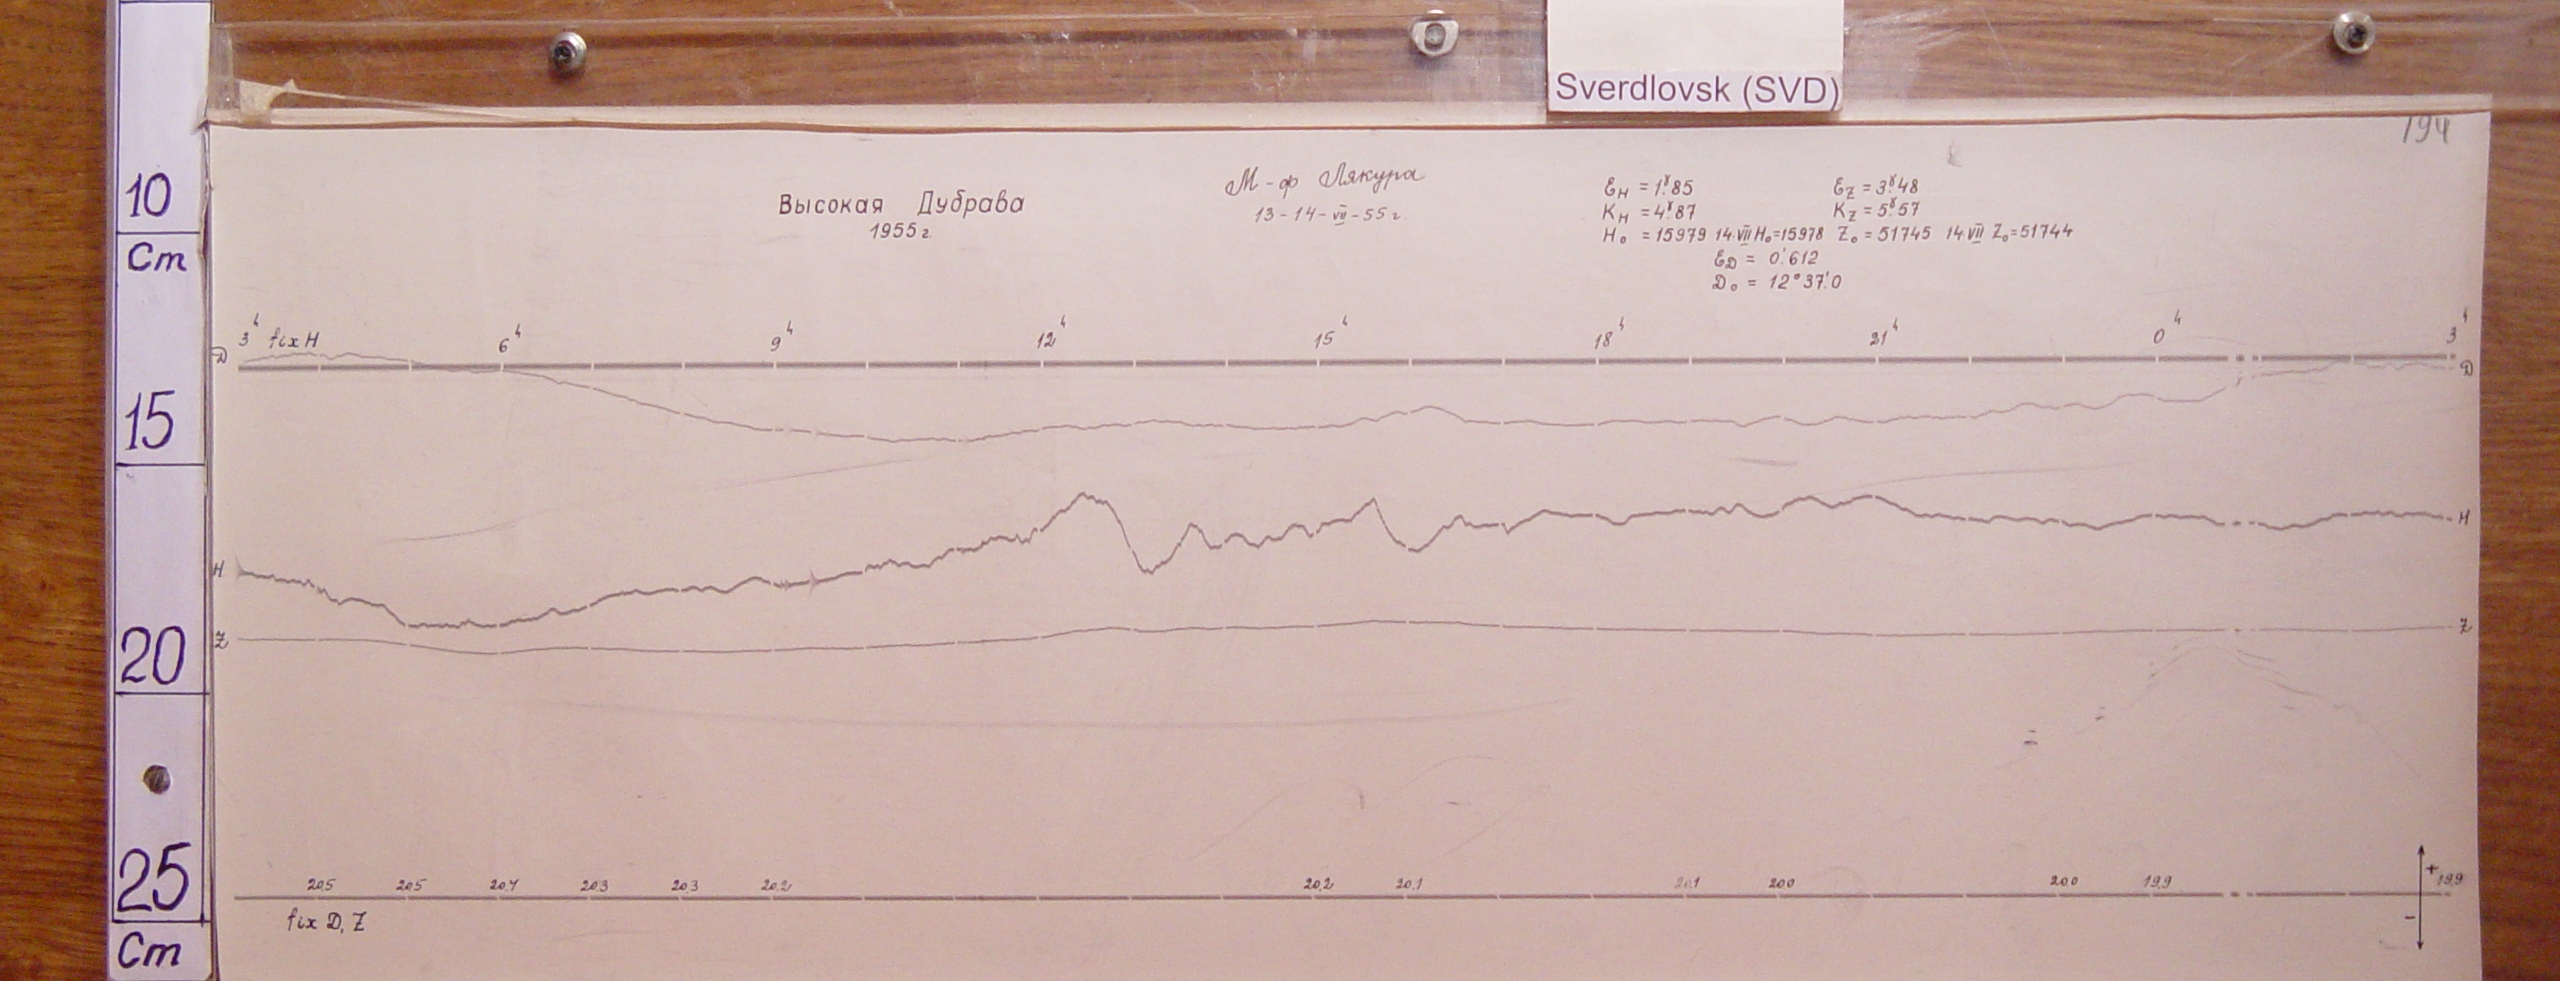 Sverdlovsk (SVD)
194
10
Cm
15
20
25
Cm
Высокая Дубрава
1955 г.
М-ф Лякура
13-14-VII-55 г.
ℰH = 1.ᵞ85 ℰZ = 3.ᵞ48
KH = 4.ᵞ87 KZ = 5.ᵞ57
H₀ = 15979 14.VII H₀=15978 Z₀ = 51745 14.VII Z₀=51744
ℰD = 0.'612
D₀ = 12°37.'0
3ʰ fix H 6ʰ 9ʰ 12ʰ 15ʰ 18ʰ 21ʰ 0ʰ 3ʰ
D D
H H
Z Z
20,5 20,5 20,4 20,3 20,3 20,2 20,2 20,1 20,1 20,0 20,0 19,9 19,9
+
-
fix D, Z